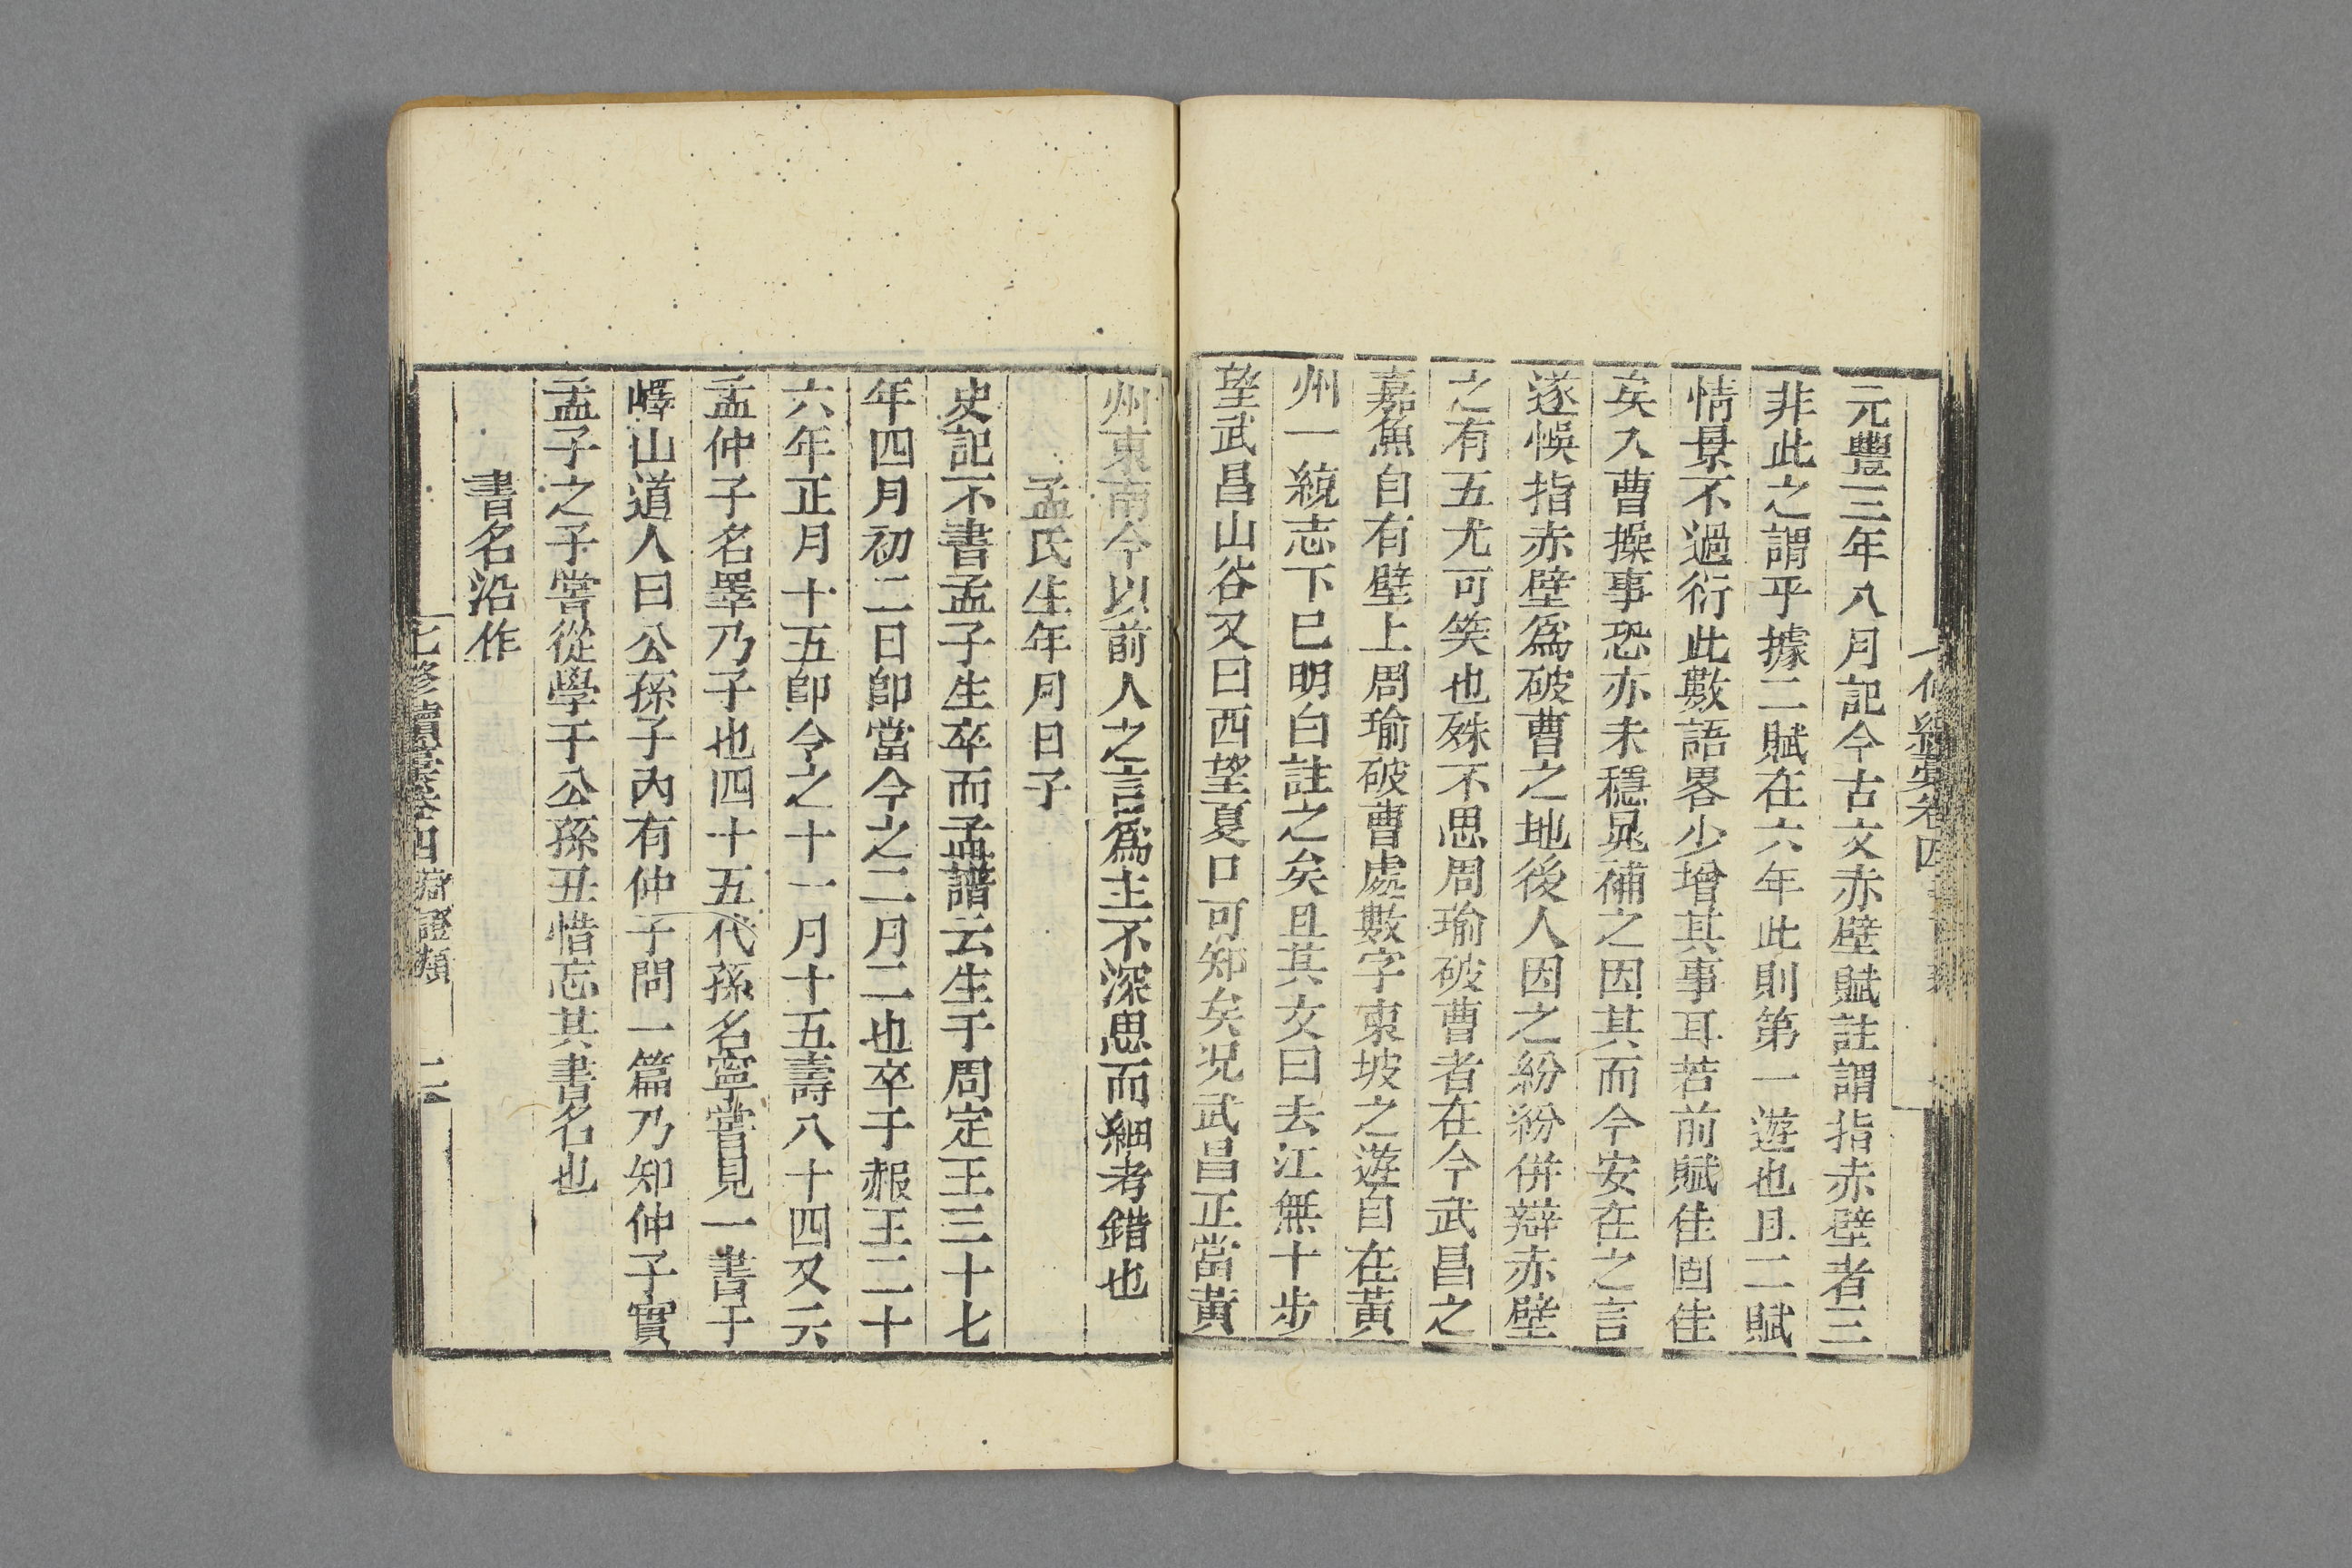 元豐三年八月記今古文赤壁賦註謂指赤壁者三
非此之謂乎據二賦在六年此則第一遊也且二賦
情景不過衍此數語畧少增其事耳若前賦佳固佳
矣入曹操事恐亦未穩晁補之因其而今安在之言
遂悞指赤壁爲破曹之地後人因之紛紛併辯赤壁
之有五尤可笑也殊不思周瑜破曹者在今武昌之
嘉魚自有壁上周瑜破曹處數字東坡之遊自在黃
州一統志下已明白註之矣且其文曰去江無十步
望武昌山谷又曰西望夏口可知矣况武昌正當黃
州東南今以前人之言爲主不深思而細考錯也
孟氏生年月日子
史記不書孟子生卒而孟譜云生于周定王三十七
年四月初二日卽當今之二月二也卒于赧王二十
六年正月十五卽今之十一月十五壽八十四又云
孟仲子名睪乃子也四十五代孫名寧嘗見一書于
嶧山道人曰公孫子內有仲子問一篇乃知仲子實
孟子之子嘗從學于公孫丑惜忘其書名也
書名沿作
七修續藁卷四 辯證類 二